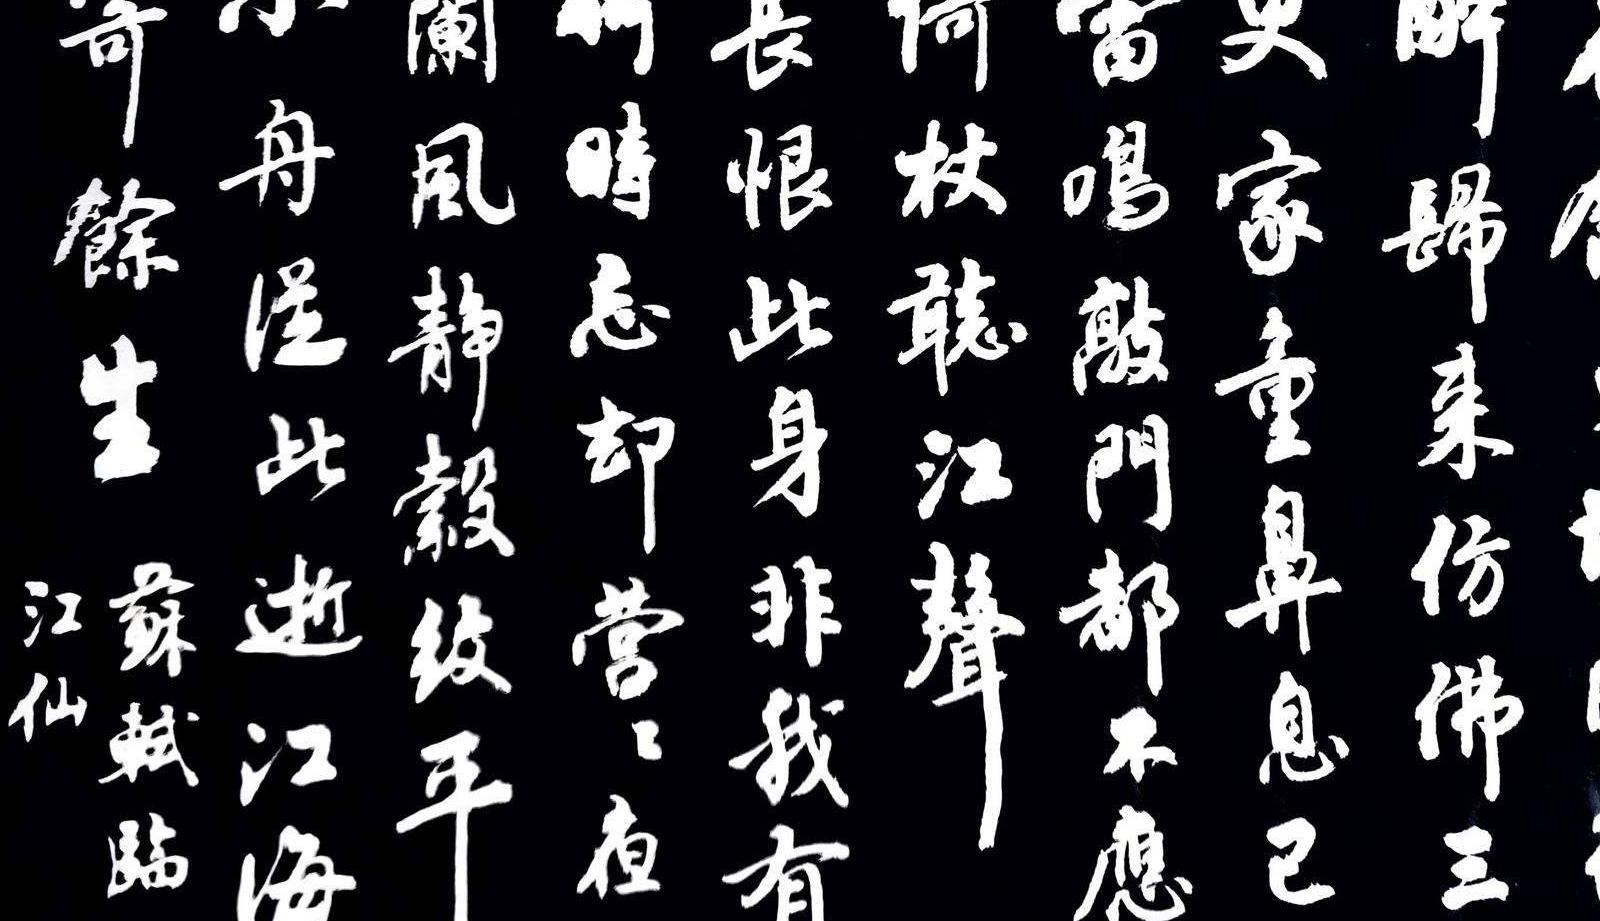 醉歸来仿佛三
更家童鼻息已
雷鳴敲門都不應
倚杖聽江聲
長恨此身非我有
何時忘却營〻夜
闌風靜縠紋平
小舟從此逝江海
寄餘生 蘇軾臨
江仙